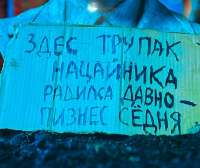 ЗДЕС ТРУПАК
НАЦАЙНИКА
РАДИЛСА ДАВНО –
ПИЗНЕС СЁДНЯ